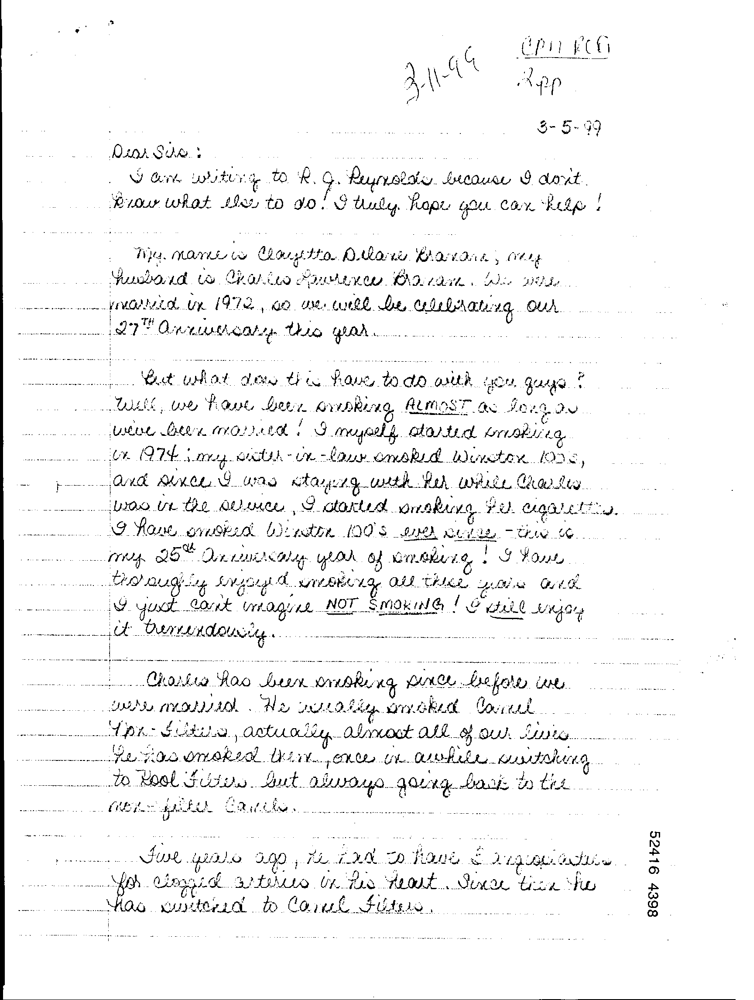 3-11-99
2pp
3-5-99
Dear Sirs:
I am writing to R. J. Reynolds because I don't
know what else to do! I truly hope you can help!
My name is Clayetta Delane Branam; my
husband is Charles Lawrence Branam. We were
married in 1972, so we will be celebrating our
27TH Anniversary this year.
But what does this have to do with you guys?
Well, we have been smoking ALMOST as long as
we've been married! I myself started smoking
in 1974; my sister-in-law smoked Winston 100s,
and since I was staying with her while Charles
was in the service, I started smoking her cigarettes.
I have smoked Winston 100's ever since - this is
my 25th Anniversary year of smoking! I have
thoroughly enjoyed smoking all these years and
I just can't imagine NOT SMOKING! I still enjoy
it tremendously.
Charles has been smoking since before we
were married. He usually smoked Camel
Non-Filters, actually almost all of our lives
he has smoked them, once in awhile switching
to Kool Filters but always going back to the
non-filter Camels.
Five years ago, he had to have angioplasties
for clogged arteries in his heart. Since then he
has switched to Camel Filters.
52416 4398